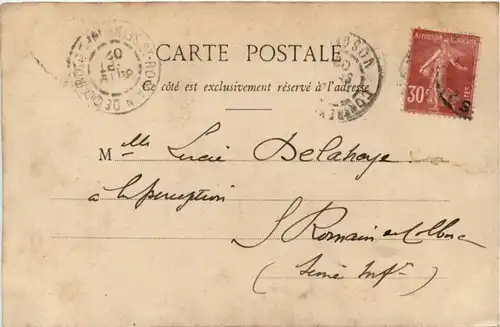 CARTE POSTALE
Ce côté est exclusivement réservé à l'adresse
RÉPUBLIQUE FRANÇAISE
30c POSTES
Mlle Lucie Delahaye
à la perception
St Romain de Colbosc
(Seine Infre)